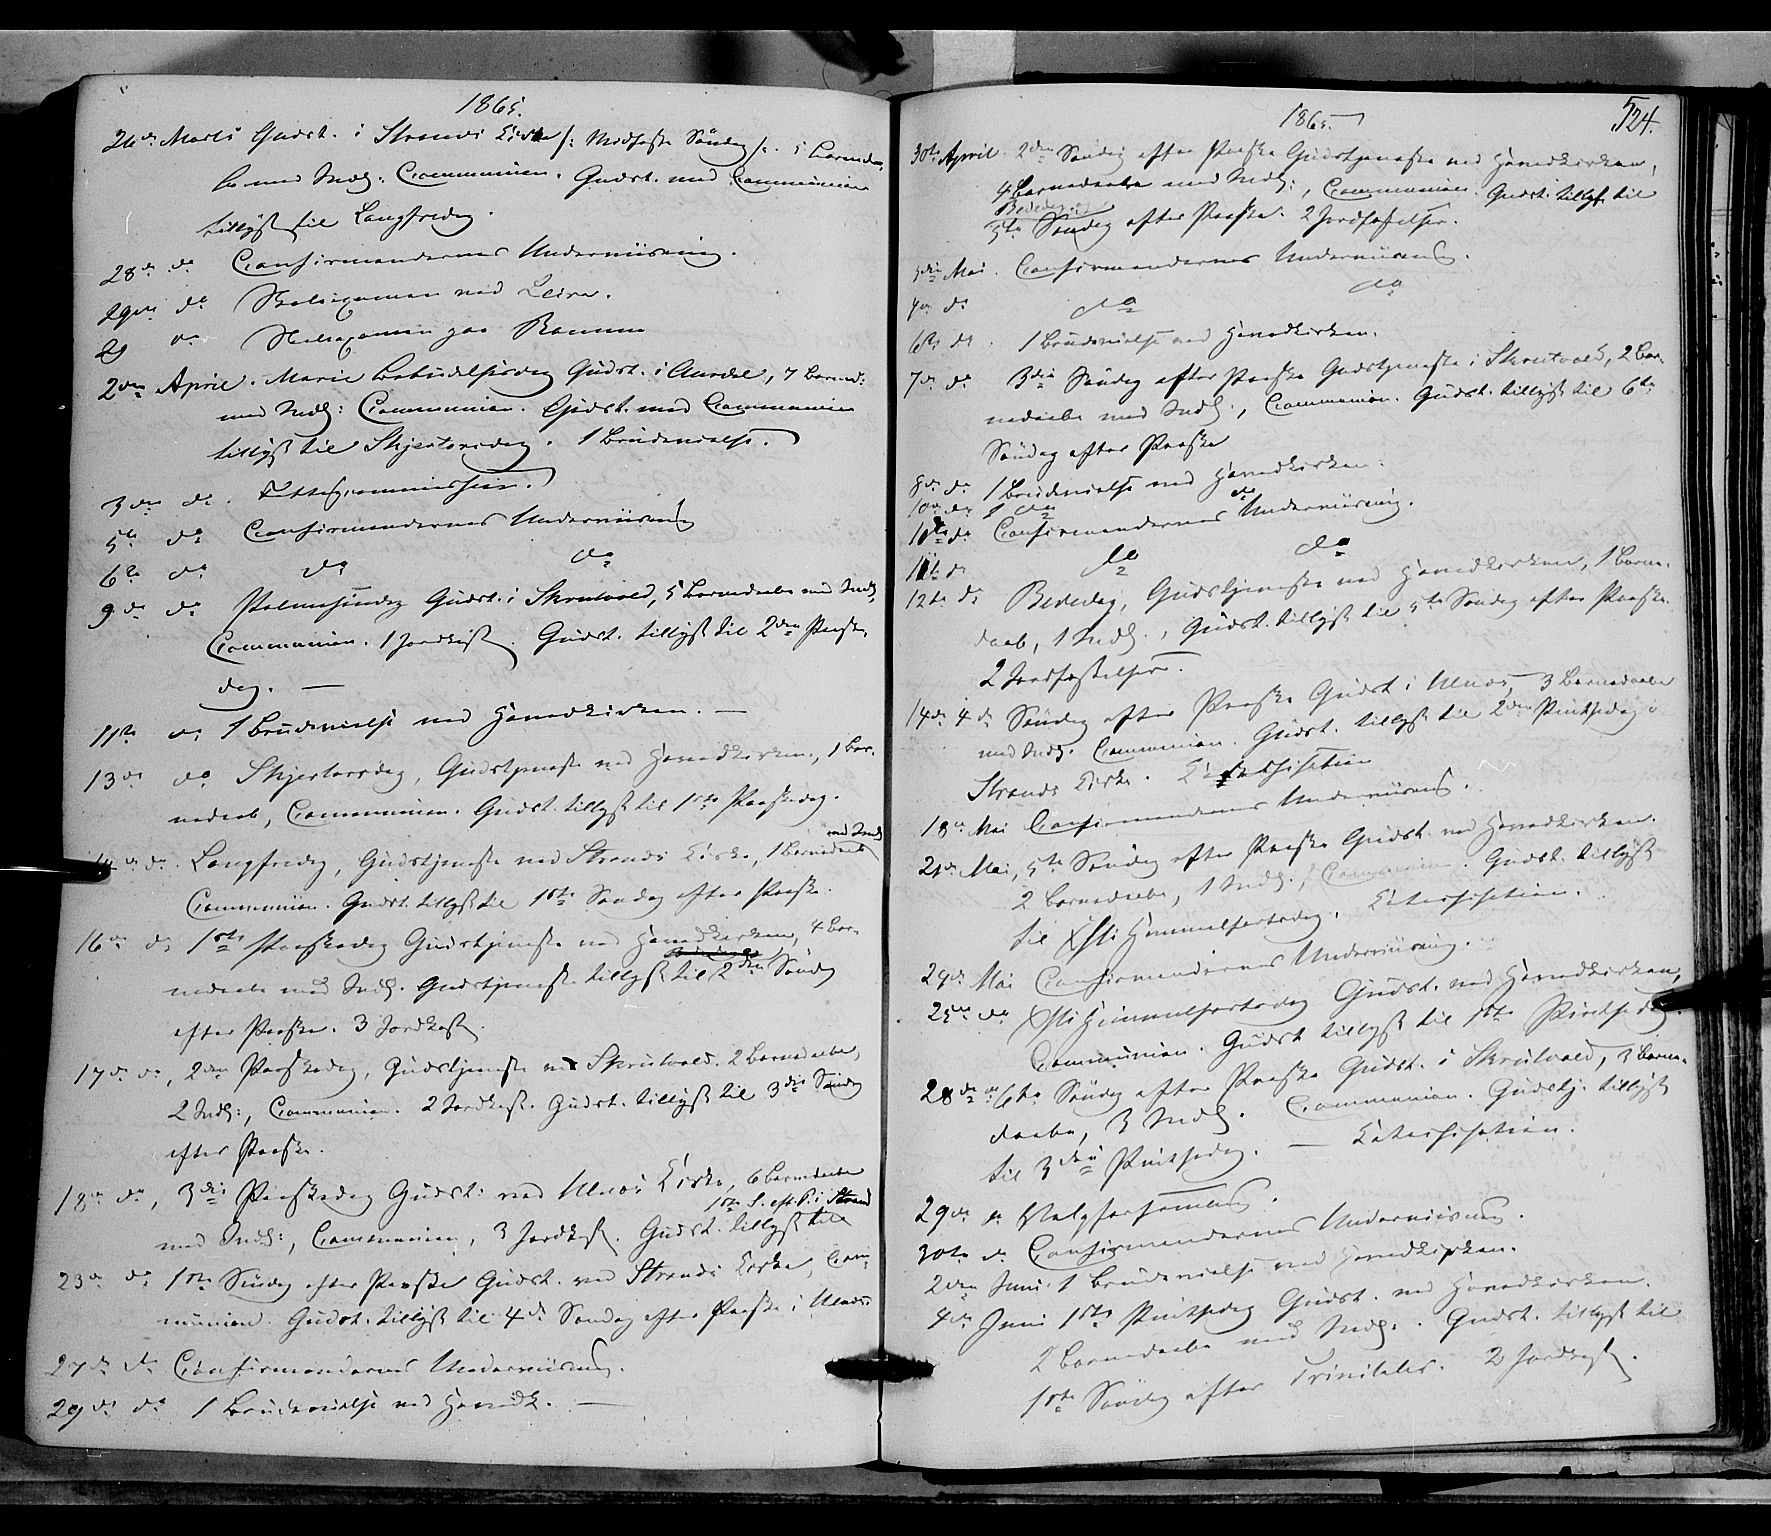 1865.
26de Marts Gudst. i Strands Kirke /: Midfaste Søndag :/. 5 Barnedaa-
be med Indl: Communion. Gudst. med Communion
tillyst til Langfredag.
28de do Confirmandernes Underviisning.
29de do Skoleexamen ved Leira.
do Skoleexamen paa
2den April. Marie Bebudelsesdag Gudst. i Aurdal, 7 Barned:
med Indl: Communion. Gudst. med Communion
tillyst til Skjertorsdag. 1 Brudevielse.
3die do. Fattigcommission.
5te do Confirmandernes Underviisning
6te do do do
9de do Palmesøndag Gudst. i Skrutvold, 5 Barnedaabe med Indl.
Communion. 1 Jordkast. Gudst. tillyst til 2den Paaske-
dag. —
11te do 1 Brudevielse ved Hovedkirken. —
13de do Skjertorsdag, Gudstjeneste ved Hovedkirken, 1 Bar-
nedaab, Communion. Gudst. tillyst til 1ste Paaskedag.
14de do. Langfredag, Gudstjeneste ved Strands Kirke, 1 Barnedaab med Indl.
Communion. Gudst. tillyst til 1ste Søndag efter Paaske.
16de do 1ste Paaskedag Gudstjeneste ved Hovedkirken, 4 Bar-
nedaabe med Indl. Gudstjeneste tillyst til 2den Søndag
efter Paaske. 3 Jordkast.
17de do, 2den Paaskedag, Gudstjeneste ved Skrutvold. 2 Barnedaabe,
2 Indl:, Communion. 2 Jordkast. Gudst. tillyst til 3die Søndag
efter Paaske.
18de do, 3die Paaskedag Gudst: ved Ulnæs Kirke, 6 Barnedaabe
1ste S. eft. P. i Strand
med Indl:, Communion, 3 Jordkast. Gudst. tillyst til
23de do 1ste Søndag efter Paaske Gudst. ved Strands Kirke, Com-
munion. Gudst. tillyst til 4de Søndag efter Paaske i Ulnæs.
27de do Confirmandernes Underviisning.
29de do 1 Brudevielse ved Hovedk. —
1865.
524.
30te April. 2den Søndag efter Paaske Gudstjeneste ved Hovedkirken,
4 Barnedaabe med Indl:, Communion. Gudst. tillyst til
Bededag og
5te Søndag efter Paaske. 2 Jordfæstelser.
3die Mai. Confirmandernes Underviisning.
4de do do do
6te do. 1 Brudevielse ved Hovedkirken.
7de do 3die Søndag efter Paaske Gudstjeneste i Skrutvold, 2 Bar-
nedaabe med Indl., Communion. Gudst. tillyst til 6te
Søndag efter Paaske
8de do 1 Brudevielse ved Hovedkirken.
10de do 1 do do
10de do Confirmandernes Underviisning.
11te do do do
12te do Bededag, Gudstjeneste ved Hovedkirken, 1 Barne-
daab, 1 Indl., Gudst. tillyst til 5te Søndag efter Paaske.
2 Jordfæstelser.
14de 4de Søndag efter Paaske Gudst i Ulnæs, 3 Barnedaabe
med Indl. Communion. Gudst. tillyst til 2den Pintsedag i
Strands Kirke. Katechisation
18de Mai Confirmandernes Underviisning.
21de Mai, 5te Søndag efter Paaske Gudst. ved Hovedkirken.
2 Barnedaabe, 1 Indl., Communion. Gudst. tillyst
til Xsti Himmelfartsdag. Katechisation.
24de Mai Confirmandernes Underviisning.
25de do Xsti Himmelfartsdag Gudst. ved Hovedkirken,
Communion. Gudst tillyst til 1ste Pintsedag.
28de do 6te Søndag efter Paaske Gudst. i Skrutvold, 3 Barne-
daabe, 3 Indl. Communion. Gudstj. tillyst
til 3die Pintsedag. — Katechisation.
29de do Valgforsamling.
30te do Confirmandernes Underviisning.
2den Juni 1 Brudevielse ved Hovedkirken.
4de Juni 1ste Pintsedag Gudst. ved Hovedkirken.
2 Barnedaabe med Indl. . Gudst. tillyst til
1ste Søndag efter Trinitatis. 2 Jordkast.